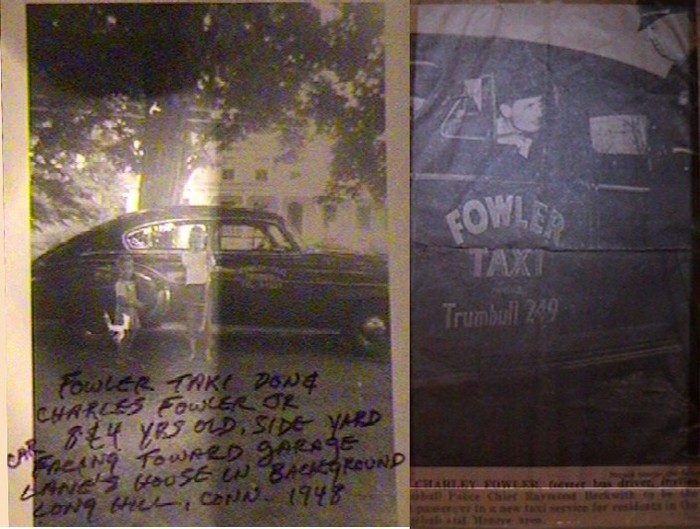 FOWLER TAXI DON &
CHARLES FOWLER JR
8 & 4 YRS OLD, SIDE YARD
CAR FACING TOWARD GARAGE
LANE'S HOUSE IN BACKGROUND
LONG HILL, CONN. 1948
FOWLER
TAXI
Trumbull 249
CHARLEY FOWLER, former bus driver,
Police Chief Raymond Beckwith to be the
passenger in a new taxi service for residents in
and Monroe